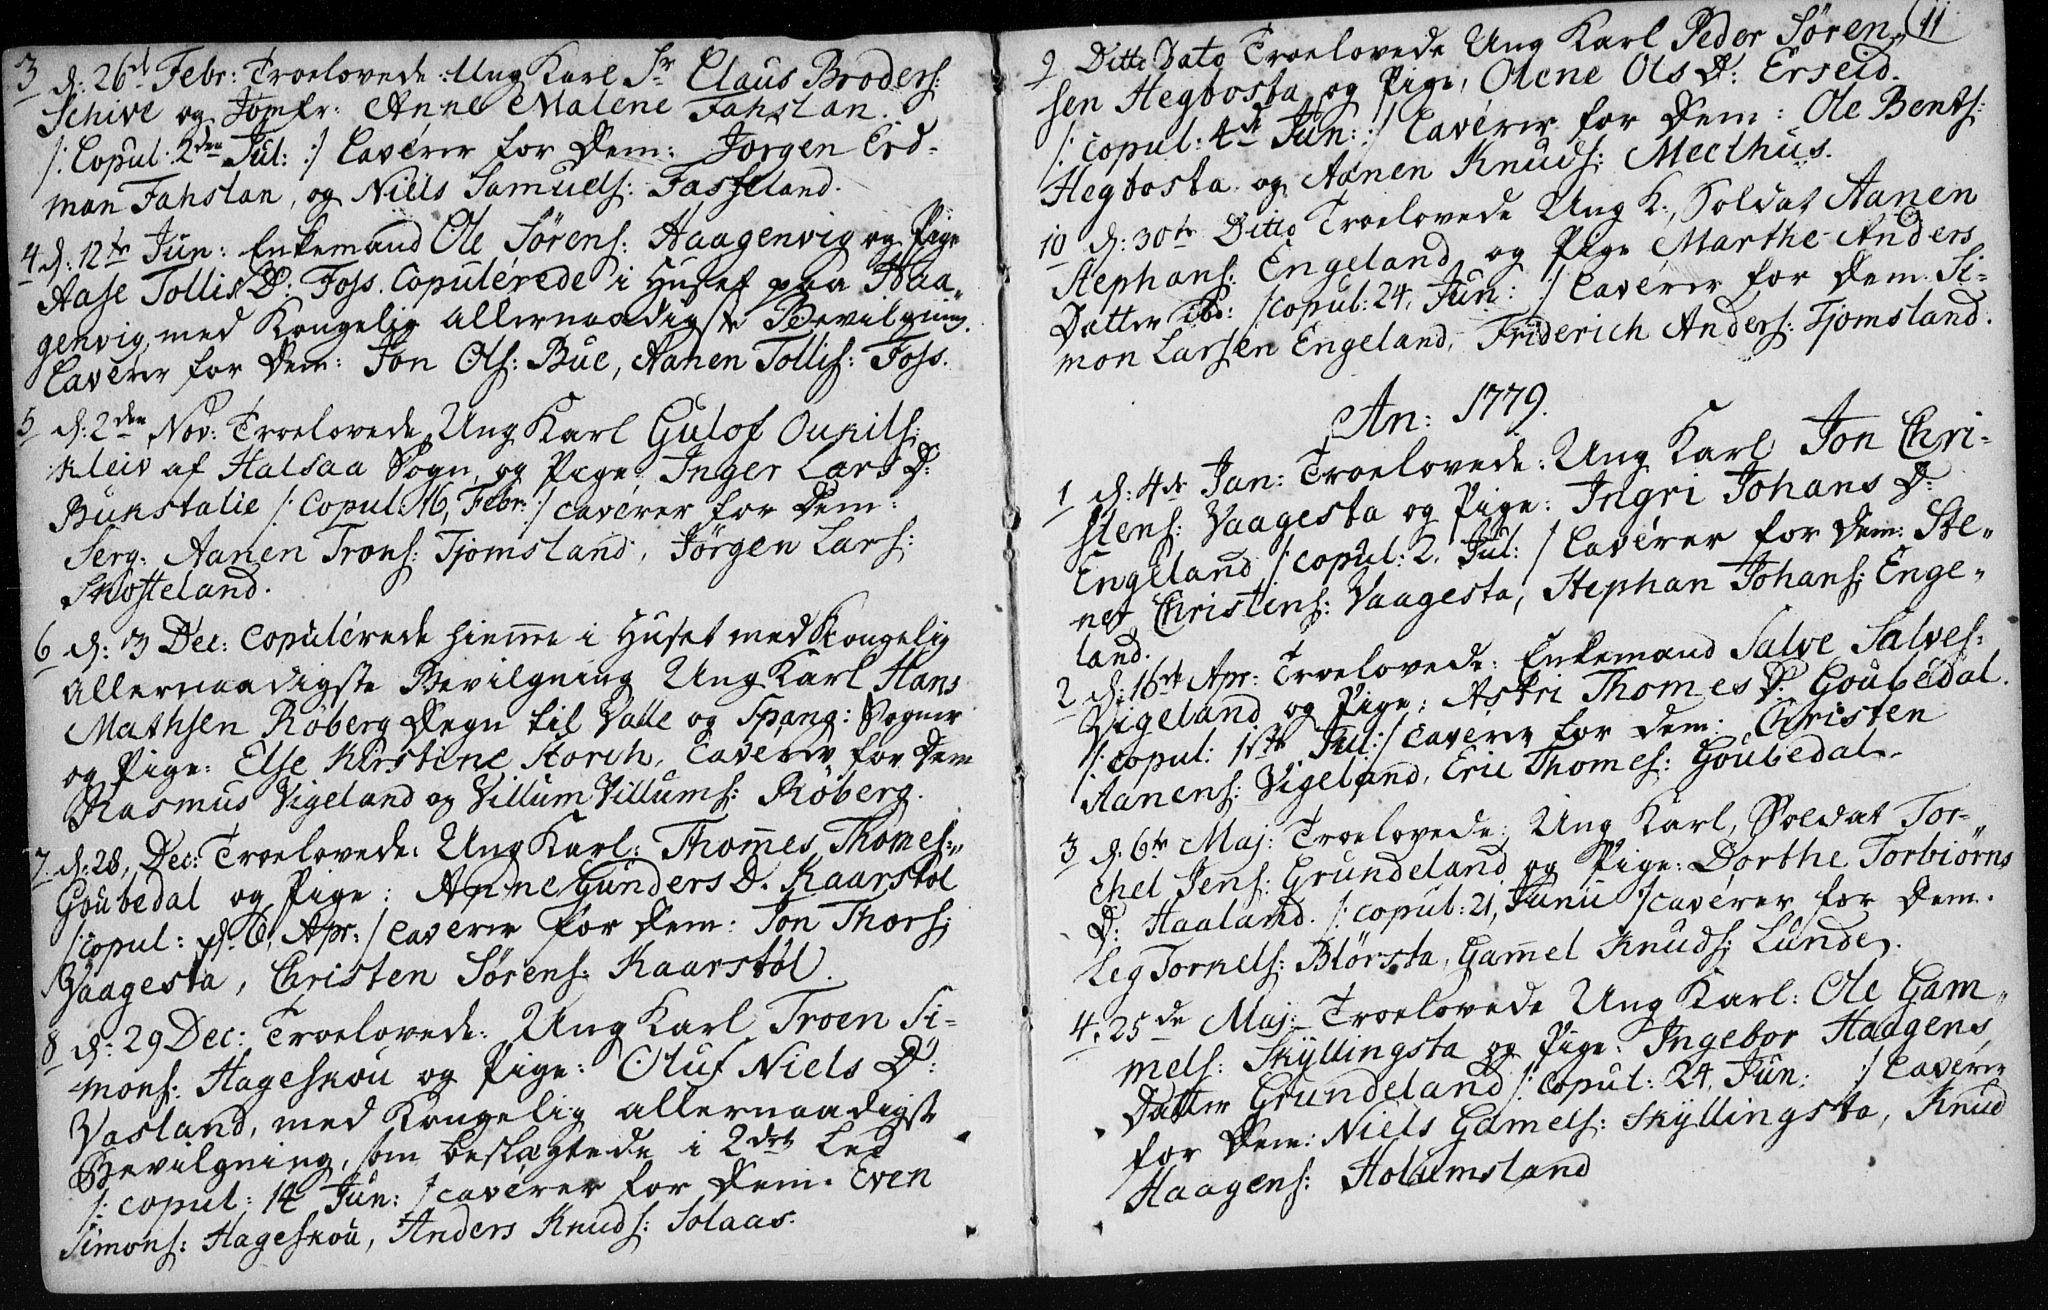 3 d: 26de Febr: Troelovede: Ung Karl Sr Claus Broders:
Schive og Jomfr: Anne Malene Fahslan.
/: Copul: 2den Jul: :/ Caverer for Dem: Jørgen Erd-
man Fahslan, og Niels Samuels: Fasseland.
4 d: 12te Jun: Enkemand Ole Sørens: Haagenvig og Pige
Aase Tollis D: Foss. Copulerede i Huset paa Haa„
genvig, med Kongelig allernaadigste Bevilgning.
Caverer for Dem: Jon Ols: Bue, Aanen Tollis: Foss.
5 d: 2den Nov: Troelovede Ung Karl Gulof Ounils:
Kleiv af Halsaa Sogn, og Pige Inger Lars D:
Bunstalie /: Copul: 16, Febr: :/ caverer for Dem:
Serg: Aanen Trons: Tjomsland, Jørgen Lars:
Skofteland.
6 d: 3 Dec: Copulerede hieme i Huset med Kongelig
allernaadigste Bevilgning Ung Karl Hans
Mathsen Røberg Degn til Valle og Spang: Sogner
og Pige: Else Kirstine Storch, Caverer for Dem
Rasmus Vigeland og Villum Villums: Røberg.
7. d: 28, Dec: Troelovede: Ung Karl: Thomes Thomes:„
Goubedal og Pige: Anne Gunders D. Kaarstøl
/: copul: d. 6, Apr: / caverer for Dem: Jon Thors:
Vaagesta, Christen Sørens: Kaarstøl.
8 d: 29 Dec: Troelovede: Ung Karl Troen Si-
mons: Hageskou og Pige: Oluf Niels D:
Vasland, med Kongelig allernaadigst
Bevilgning, som beslægtede i 2det Led
/: copul: 14 Jun: / caverer for Dem. Even
Simons: Hageskou, Anders Knuds: Solaas.
11
9 Ditto Dato Troelovede Ung Karl Peder Søren„
sen Hegbosta og Pige, Olene Ols D: Erseid.
/: copul: 4de Jun: :/ Caverer for Dem: Ole Bents:
Hegbosta og Aanen Knuds: Meelhus.
10 d: 30te Ditto Troelovede Ung K:, Soldat Aanen
Stephans: Engeland og Pige Marthe Anders
Datter ibd: /copul: 24, Jun: :/ Caverer for Dem: Si-
mon Larsen Engeland, Friderich Anders: Tjomsland.
An: 1779.
1 d: 4de Jan: Troelovede: Ung Karl Jon Chri-
stens: Vaagesta og Pige: Ingri Johans D:
Engeland /: copul: 2. Jul: / Caverer for Dem: Ste„
net Christens: Vaagesta, Stephan Johans: Enge„
land.
2 d: 16de Apr: Troelovede: Enkemand Salve Salves:
Vigeland og Pige: Astri Thomes D: Goubedal.
/: copul: 1ste Jul: / caverer for dem: Christen
Aanens: Vigeland, Eric Thomes: Goubedal.
3 d: 6te Maj: Troelovede: Ung Karl, Soldat Tor-
chel Jens: Grundeland og Pige: Dorthe Torbiørns
D: Haaland. /: copul: 21, Junii :/ caverer for Dem.
Leg Tornels: Blørsta, Gamel Knuds: Lunde.
4. 25de Maj: Troelovede Ung Karl: Ole Gam„
mels: Skyllingsta og Pige: Ingebor Haagens
Datter Grundeland /: copul: 24, Jun: :/ Caverer
for Dem: Niels Gamels: Skyllingsta, Knud
Haagens: Holumsland